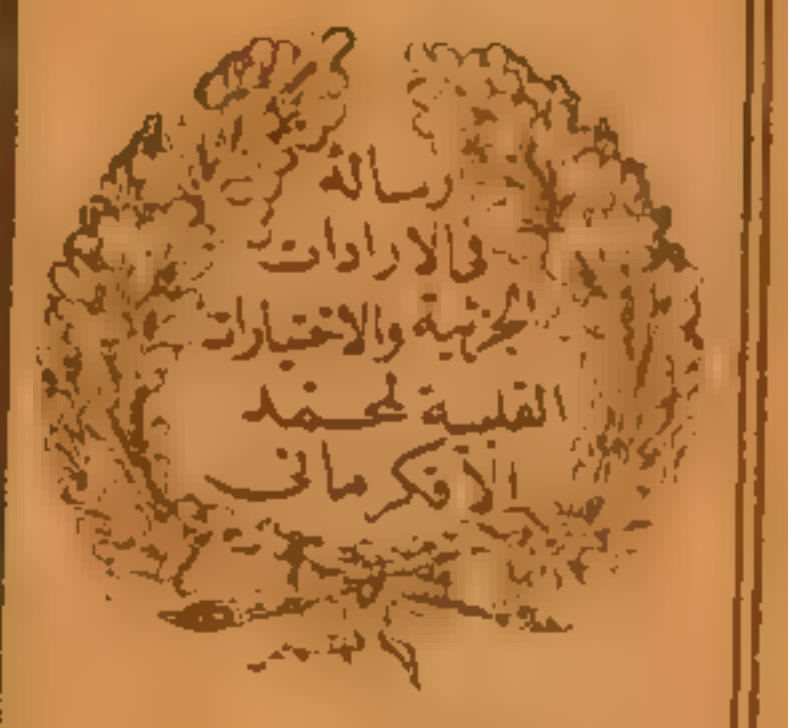 رسالة
فى الارادات
الجزئية والاختيارات
القلبية لمحمد
الاقكرمانى